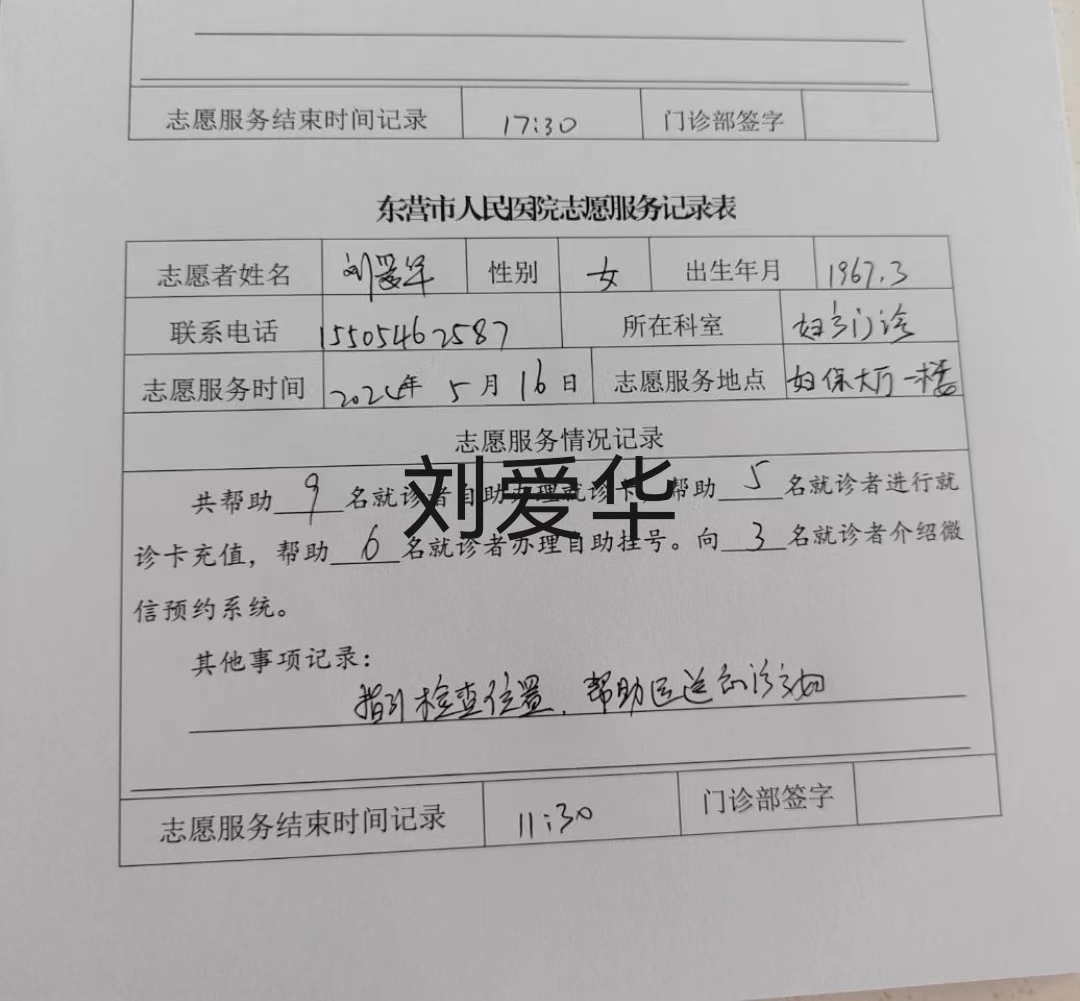 志愿服务结束时间记录 17:30 门诊部签字
东营市人民医院志愿服务记录表
志愿者姓名 刘爱华 性别 女 出生年月 1967.3
联系电话 15505462587 所在科室 妇产门诊
志愿服务时间 2024年 5月 16日 志愿服务地点 妇保大厅一楼
志愿服务情况记录
共帮助 9 名就诊者自助办理就诊卡 帮助 5 名就诊者进行就
刘爱华
诊卡充值，帮助 6 名就诊者办理自助挂号。向 3 名就诊者介绍微
信预约系统。
其他事项记录：
指引检查位置，帮助运送
志愿服务结束时间记录 11:30 门诊部签字